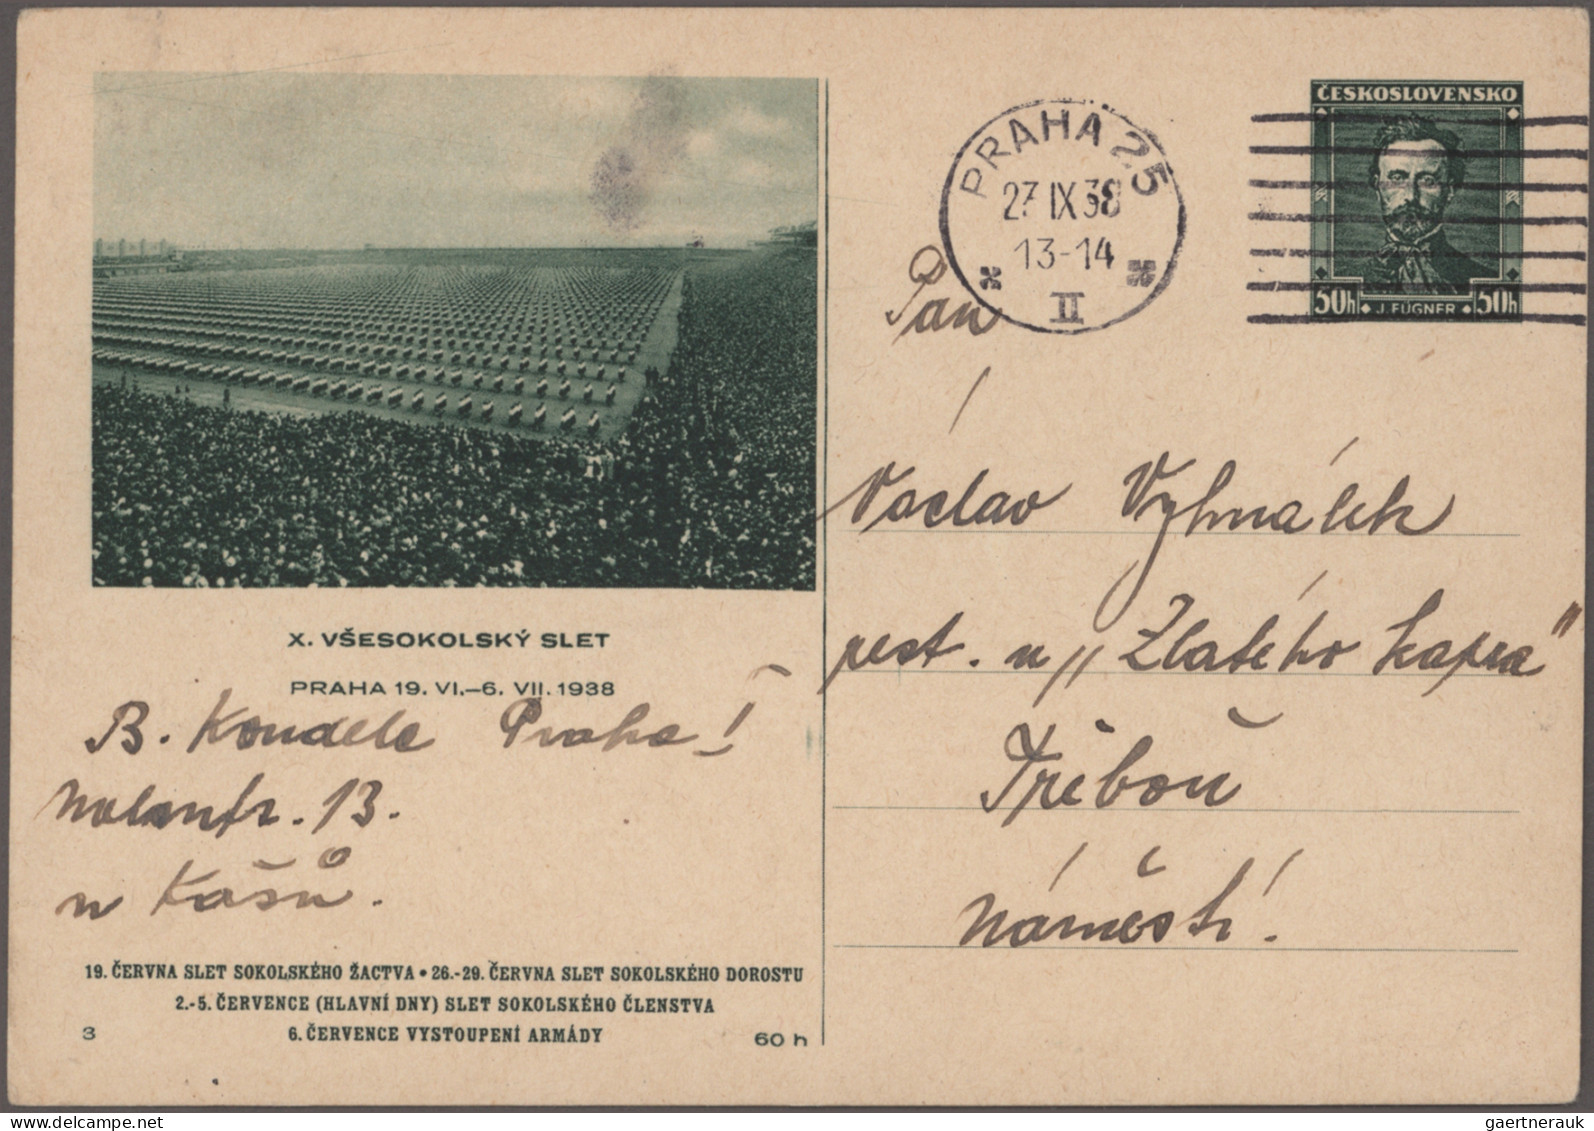 ČESKOSLOVENSKO
50h J. FÜGNER 50h
PRAHA 25
27 IX 38
13-14
II
Pán
Václav Vyhnálek
rest. u „Zlatého kapra"
Třeboň
náměstí.
X. VŠESOKOLSKÝ SLET
PRAHA 19. VI.–6. VII. 1938
B. Koudele Praha I
13.
u Kašů.
19. ČERVNA SLET SOKOLSKÉHO ŽACTVA • 26.-29. ČERVNA SLET SOKOLSKÉHO DOROSTU
2.-5. ČERVENCE (HLAVNÍ DNY) SLET SOKOLSKÉHO ČLENSTVA
6. ČERVENCE VYSTOUPENÍ ARMÁDY
3
60 h
gaertnerauk